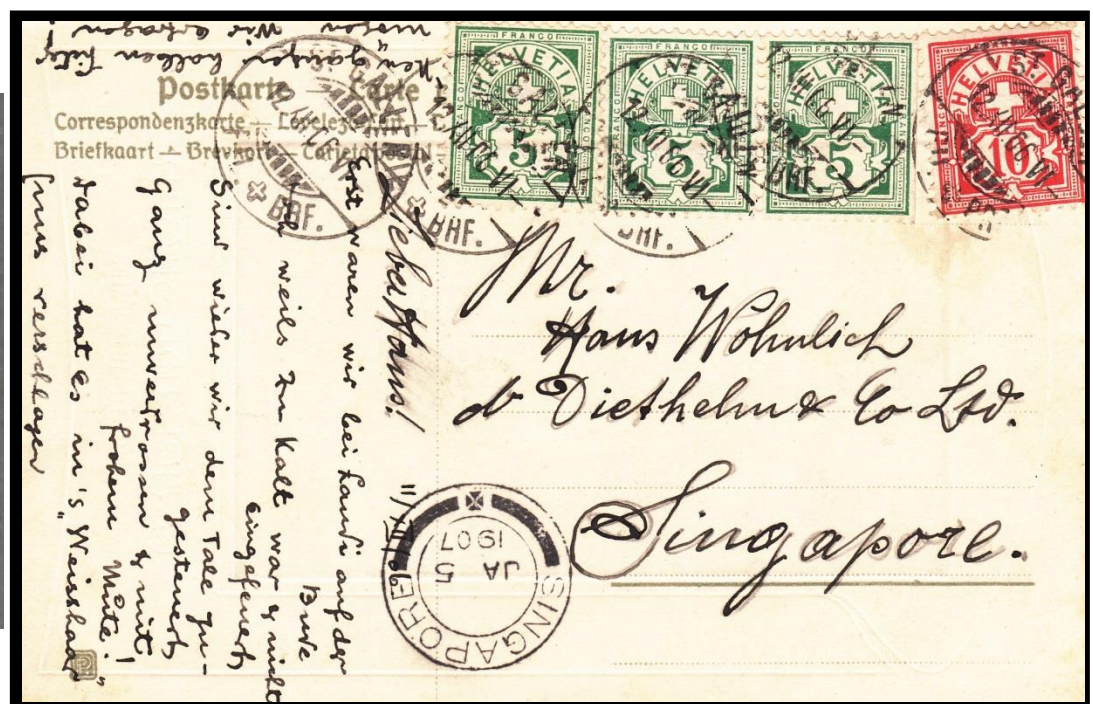 Postkarte — Carte
Correspondenzkarte — Levelező
Briefkaart — Brevkort — Cartetapostal
FRANCO
HELVETIA
5
FRANCO
HELVETIA
5
FRANCO
HELVETIA
5
HELVETIA
10
ST. GALLEN
12.XII.06.VI
BHF.
Mr.
Hans Wohnlich
d° Diethelm & Co Ltd.
Singapore.
SINGAPORE
JA 5
1907
11/XII 06
Lieber Hans!
Erst waren wir bei Landi auf der
Bude
weils zu kalt war & nicht
eingefeuert,
Sind wieder wir dem Tale zu-
gesteuert,
Ganz unverrossen & mit
frohem Mute!
Dabei hat es in's "Weisshaar
uns verschlagen
Wir
ganzen halben Liter